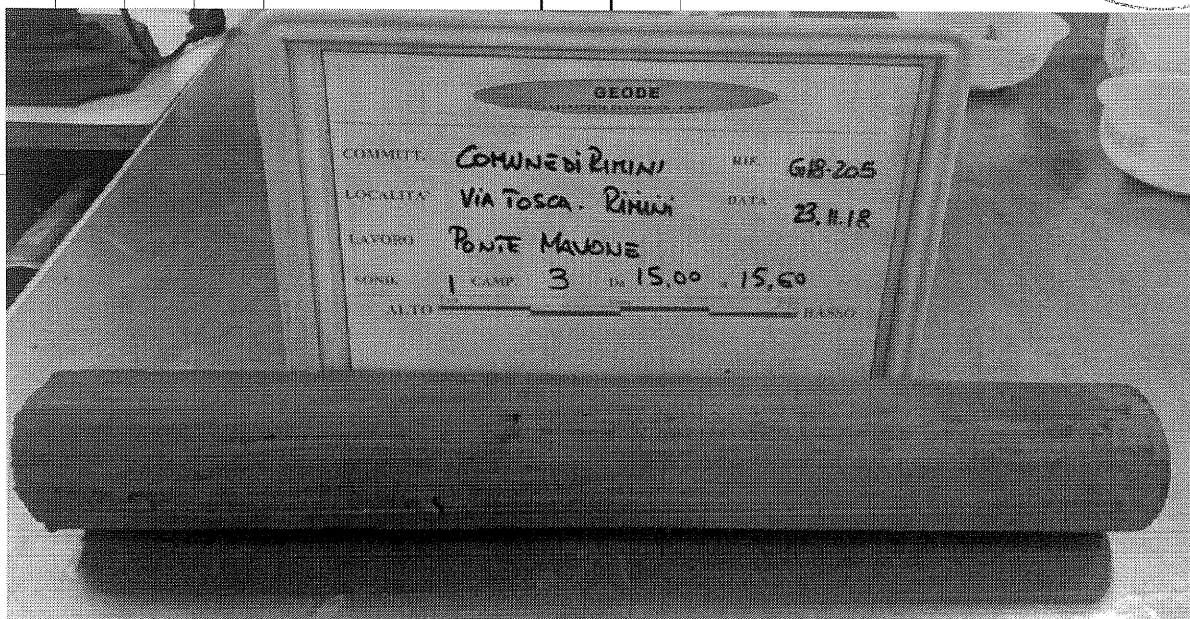 GEODE
COMMITT. COMUNE di RIMINI RIF. G18-205
LOCALITA' VIA TOSCA. RIMINI DATA 23.11.18
LAVORO PONTE MAVONE
SOND. 1 CAMP. 3 Da 15,00 a 15,60
ALTO BASSO